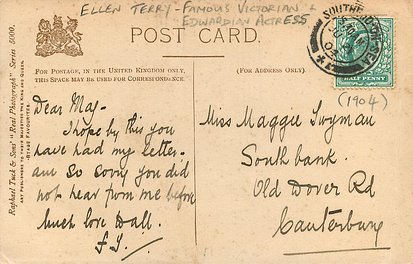 ELLEN TERRY - FAMOUS VICTORIAN +
EDWARDIAN ACTRESS
POST CARD.
FOR POSTAGE, IN THE UNITED KINGDOM ONLY,
THIS SPACE MAY BE USED FOR CORRESPONDENCE
(FOR ADDRESS ONLY.)
HALF PENNY
(1904)
Raphael Tuck & Sons' "Real Photograph" Series 5000.
ART PUBLISHERS TO THEIR MAJESTIES THE KING AND QUEEN.
Dear Mag-
I hope by this you
have had my letter-
am so sorry you did
not hear from me before
Much love to all.
Miss Maggie Twyman
Southbank.
Old Dover Rd
Canterbury